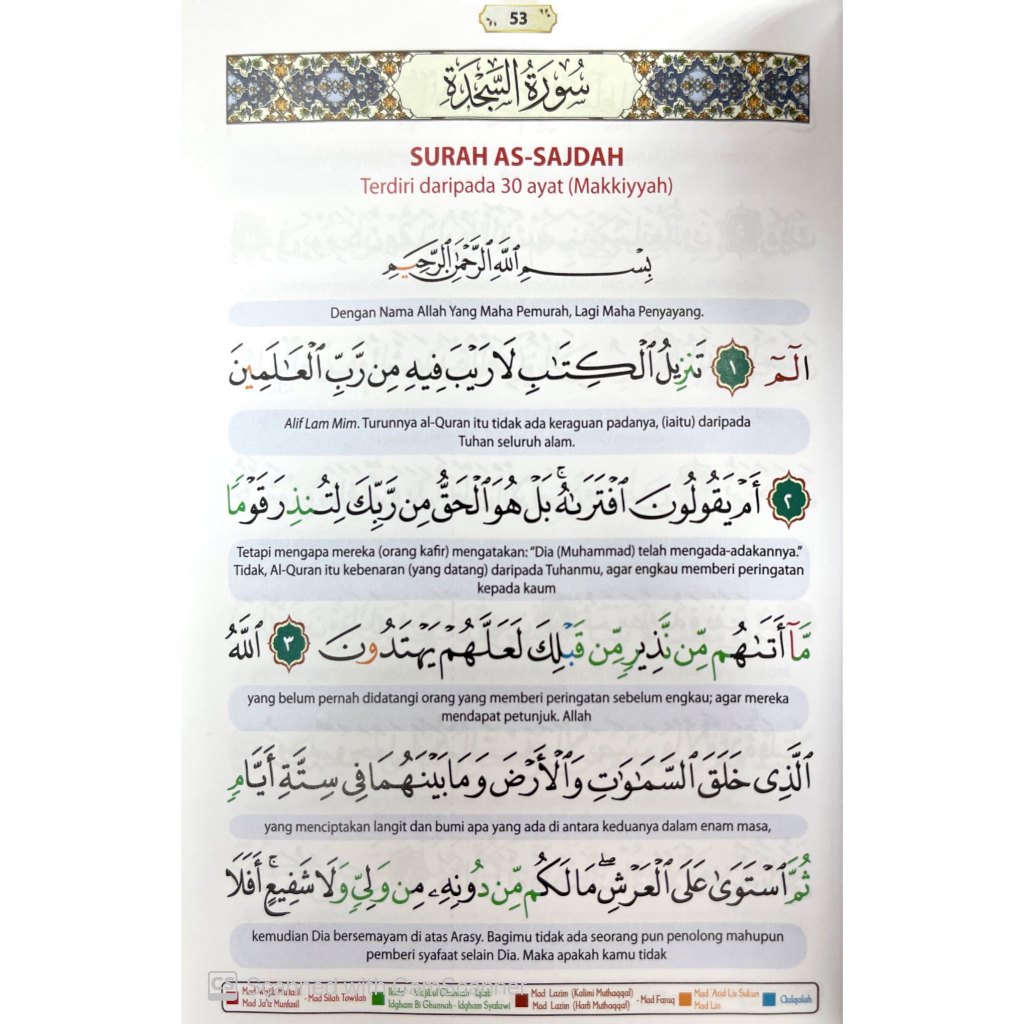 53
سُورَةُ السَّجْدَةِ
SURAH AS-SAJDAH
Terdiri daripada 30 ayat (Makkiyyah)
بِسْمِ ٱللَّهِ ٱلرَّحْمَٰنِ ٱلرَّحِيمِ
Dengan Nama Allah Yang Maha Pemurah, Lagi Maha Penyayang.
الٓمٓ ١ تَنزِيلُ ٱلْكِتَٰبِ لَا رَيْبَ فِيهِ مِن رَّبِّ ٱلْعَٰلَمِينَ
Alif Lam Mim. Turunnya al-Quran itu tidak ada keraguan padanya, (iaitu) daripada
Tuhan seluruh alam.
٢ أَمْ يَقُولُونَ ٱفْتَرَىٰهُ ۚ بَلْ هُوَ ٱلْحَقُّ مِن رَّبِّكَ لِتُنذِرَ قَوْمًا
Tetapi mengapa mereka (orang kafir) mengatakan: "Dia (Muhammad) telah mengada-adakannya."
Tidak, Al-Quran itu kebenaran (yang datang) daripada Tuhanmu, agar engkau memberi peringatan
kepada kaum
مَّآ أَتَىٰهُم مِّن نَّذِيرٍ مِّن قَبْلِكَ لَعَلَّهُمْ يَهْتَدُونَ ٣ ٱللَّهُ
yang belum pernah didatangi orang yang memberi peringatan sebelum engkau; agar mereka
mendapat petunjuk. Allah
ٱلَّذِى خَلَقَ ٱلسَّمَٰوَٰتِ وَٱلْأَرْضَ وَمَا بَيْنَهُمَا فِى سِتَّةِ أَيَّامٍ
yang menciptakan langit dan bumi apa yang ada di antara keduanya dalam enam masa,
ثُمَّ ٱسْتَوَىٰ عَلَى ٱلْعَرْشِ ۖ مَا لَكُم مِّن دُونِهِۦ مِن وَلِىٍّ وَلَا شَفِيعٍ ۚ أَفَلَا
kemudian Dia bersemayam di atas Arasy. Bagimu tidak ada seorang pun penolong mahupun
pemberi syafaat selain Dia. Maka apakah kamu tidak
CS Scanned with CamScanner
Mad Wajib Muttasil - Mad Silah Towilah
Mad Ja'iz Munfasil
Idgham Bi Ghunnah - Idgham Syafawi
Mad Lazim (Kalimi Muthaqqal) - Mad Faraq
Mad Lazim (Harfi Muthaqqal)
Mad 'Arid Lis Sukun
Mad Lin
Qalqalah